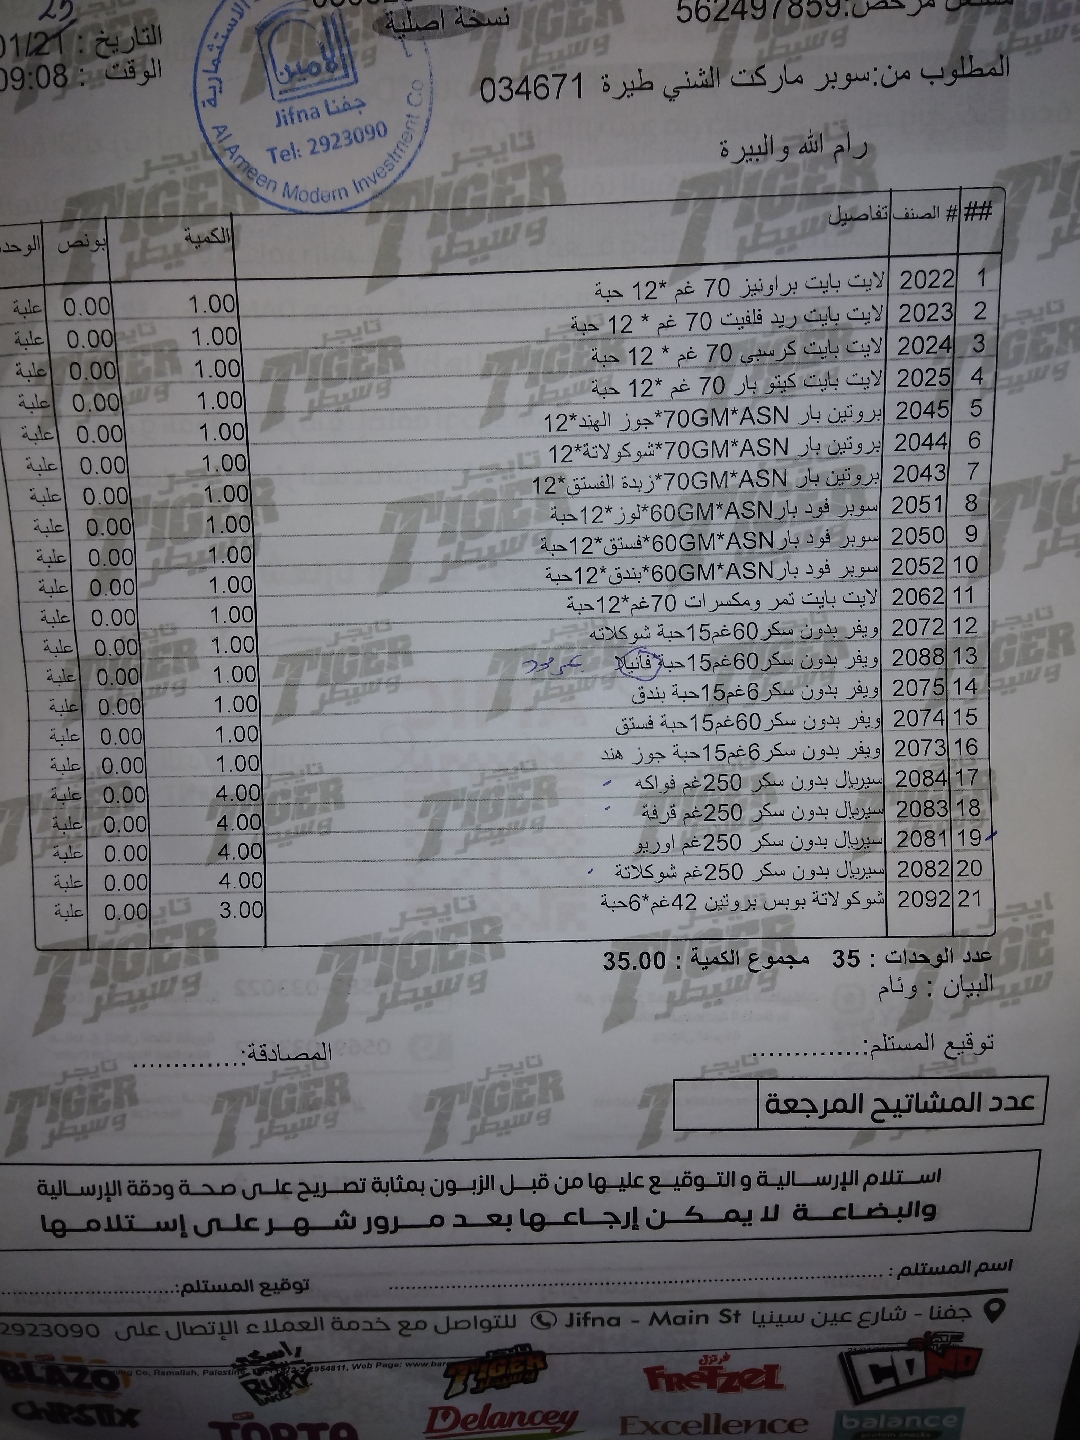 562497859:مشتغل مرخص
نسخة أصلية
التاريخ : 01/21
الوقت : 09:08
الأمين
جفنا Jifna
Tel: 2923090
Al Ameen Modern Investment Co
المطلوب من:سوبر ماركت الشني طيرة 034671
رام الله والبيرة
## # الصنف تفاصيل الكمية بونص الوحد
1 2022 لايت بايت براونيز 70 غم *12 حبة 1.00 0.00 علبة
2 2023 لايت بايت ريد فلفيت 70 غم * 12 حبة 1.00 0.00 علبة
3 2024 لايت بايت كرسبي 70 غم * 12 حبة 1.00 0.00 علبة
4 2025 لايت بايت كيتو بار 70 غم *12 حبة 1.00 0.00 علبة
5 2045 بروتين بار 70GM*ASN*جوز الهند*12 1.00 0.00 علبة
6 2044 بروتين بار 70GM*ASN*شوكولاتة*12 1.00 0.00 علبة
7 2043 بروتين بار 70GM*ASN*زبدة الفستق*12 1.00 0.00 علبة
8 2051 سوبر فود بار60GM*ASN*لوز*12حبة 1.00 0.00 علبة
9 2050 سوبر فود بار60GM*ASN*فستق*12حبة 1.00 0.00 علبة
10 2052 سوبر فود بار60GM*ASN*بندق*12حبة 1.00 0.00 علبة
11 2062 لايت بايت تمر ومكسرات 70غم*12حبة 1.00 0.00 علبة
12 2072 ويفر بدون سكر60غم15حبة شوكلاته 1.00 0.00 علبة
13 2088 ويفر بدون سكر60غم15حبة*فانيلا 1.00 0.00 علبة
14 2075 ويفر بدون سكر6غم15حبة بندق 1.00 0.00 علبة
15 2074 ويفر بدون سكر60غم15حبة فستق 1.00 0.00 علبة
16 2073 ويفر بدون سكر6غم15حبة جوز هند 1.00 0.00 علبة
17 2084 سيريال بدون سكر 250غم فواكه 4.00 0.00 علبة
18 2083 سيريال بدون سكر 250غم قرفة 4.00 0.00 علبة
19 2081 سيريال بدون سكر 250غم اوريو 4.00 0.00 علبة
20 2082 سيريال بدون سكر 250غم شوكلاتة 4.00 0.00 علبة
21 2092 شوكولاتة بوبس بروتين 42غم*6حبة 3.00 0.00 علبة
عدد الوحدات : 35 مجموع الكمية : 35.00
البيان : وئام
توقيع المستلم:............. المصادقة:.............
عدد المشاتيح المرجعة
استلام الإرسالية و التوقيع عليها من قبل الزبون بمثابة تصريح على صحة ودقة الإرسالية
والبضاعة لا يمكن إرجاعها بعد مرور شهر على إستلامها
اسم المستلم : ............. توقيع المستلم:.............
جفنا - شارع عين سينيا Jifna - Main St للتواصل مع خدمة العملاء الإتصال على 2923090
BLAZO
TIGER
FRETZEL
COMO
CHIPSTIX
TORTA
Delancey
Excellence
balance